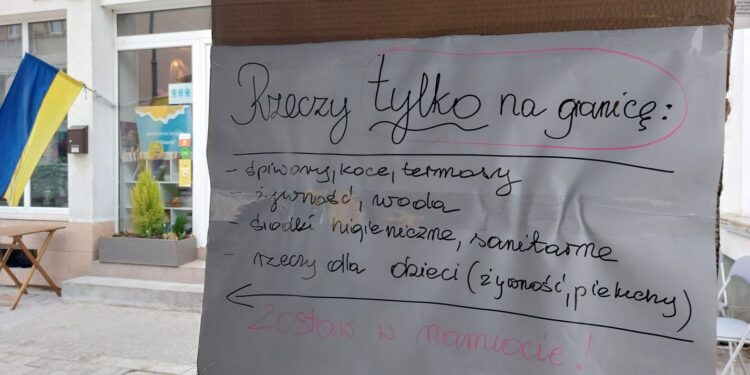 Rzeczy tylko na granicę:
- śpiwory, koce, termosy
żywność, woda
- środki higieniczne, sanitarne
- rzeczy dla dzieci (żywność, pieluchy)
Zostaw w namiocie!